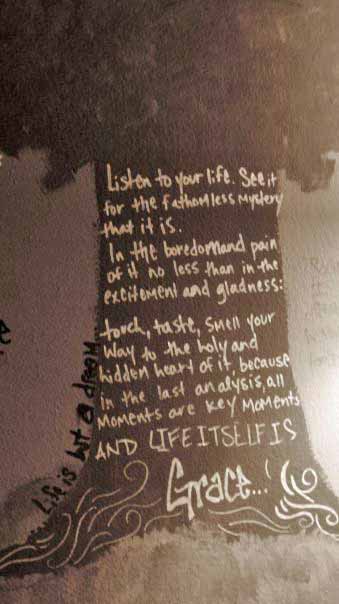 Listen to your life. See it
for the fathomless mystery
that it is.
In the boredom and pain
of it no less than in the
excitement and gladness:
touch, taste, smell your
way to the holy and
hidden heart of it, because
in the last analysis, all
moments are key moments
AND LIFE ITSELF IS
Grace...!
Life is but a dream...